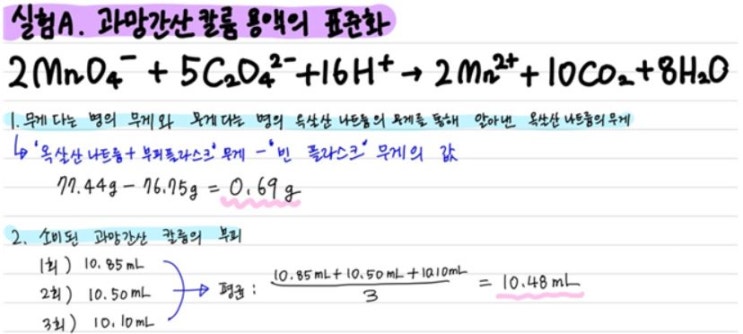 실험A. 과망간산 칼륨 용액의 표준화
2MnO₄⁻ + 5C₂O₄²⁻ + 16H⁺ → 2Mn²⁺ + 10CO₂ + 8H₂O
1. 무게 다는 병의 무게와 무게 다는 병의 옥살산 나트륨의 무게를 통해 알아낸 옥살산 나트륨의 무게
↳ "옥살산 나트륨 + 부피플라스크" 무게 - "빈 플라스크" 무게의 값
77.44g - 76.75g = 0.69g
2. 소비된 과망간산 칼륨의 부피
1회) 10.85mL
2회) 10.50mL → 평균: (10.85mL + 10.50mL + 10.10mL) / 3 = 10.48mL
3회) 10.10mL